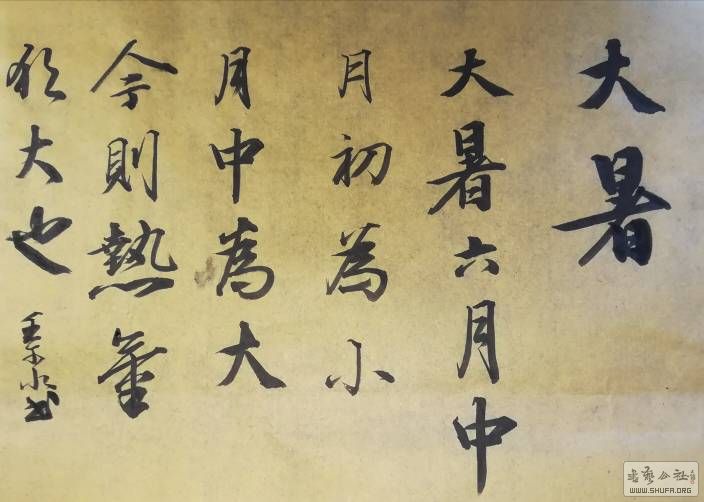 大暑
大暑六月中
月初為小
月中為大
今則熱
犹大也
書藝公社
WWW.SHUFA.ORG